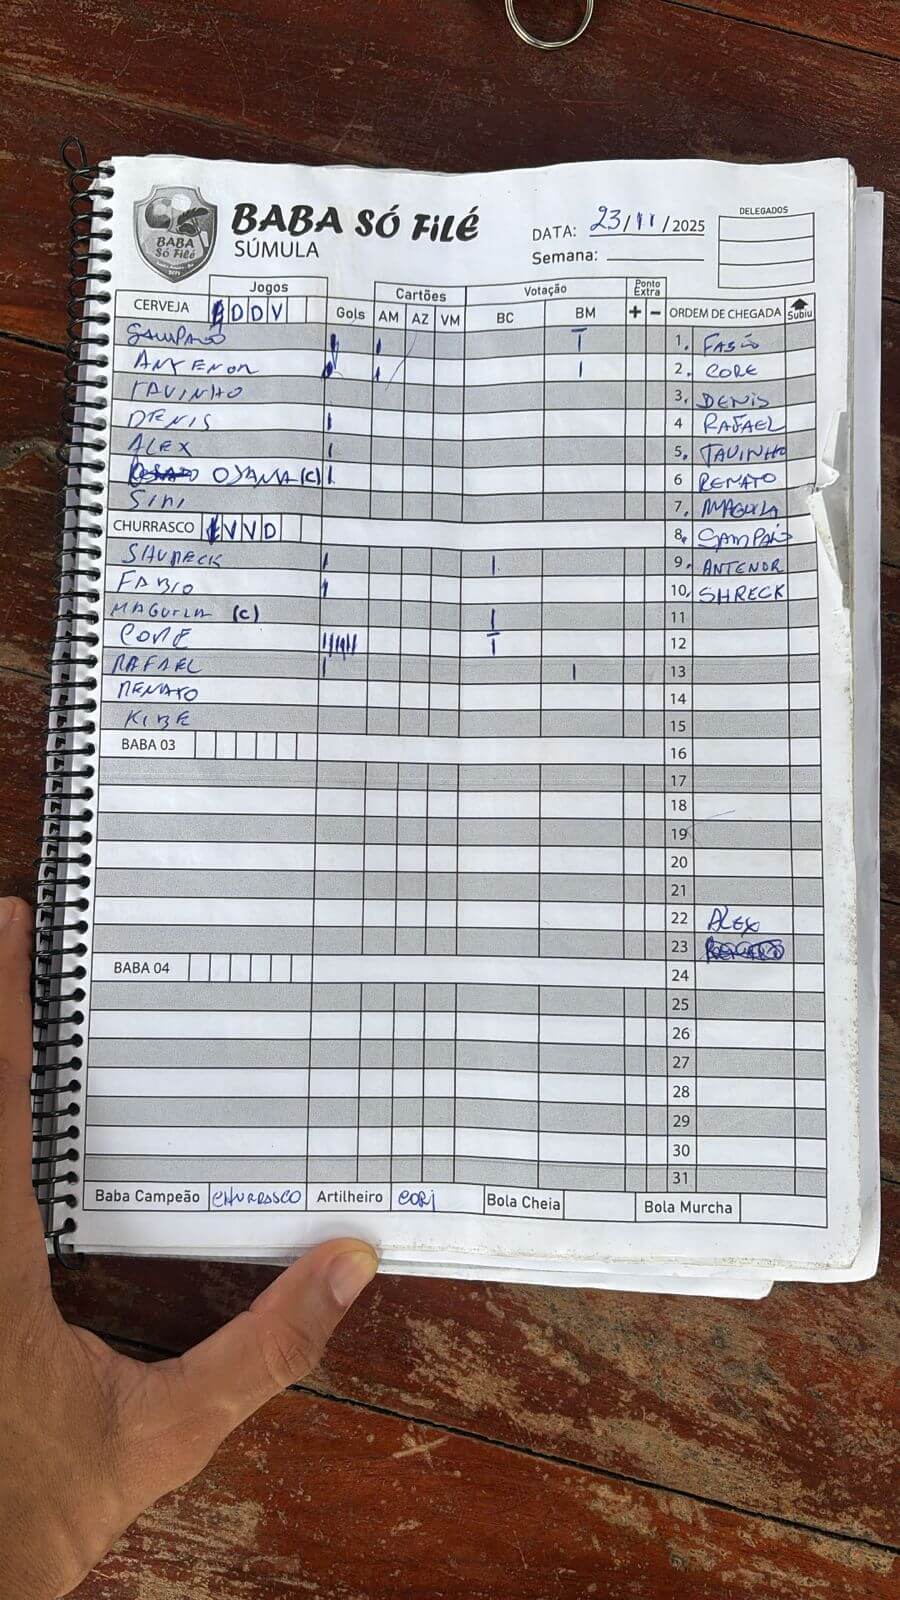 BABA Só Filé
BABA SÓ FiLÉ
SÚMULA
DATA: 23/11/2025
Semana:
DELEGADOS
Jogos
Gols
Cartões
AM AZ VM
Votação
BC BM
Ponto Extra
+ -
ORDEM DE CHEGADA
Subiu
CERVEJA D D V
SAMPAIO
ANTENOR
TAVINHO
DENIS
ALEX
OJAMA (C)
SINI
CHURRASCO V V D
SHURECK
FABIO
MAGUILA (C)
CORE
RAFAEL
RENATO
KIBE
BABA 03
BABA 04
1. FABIO
2. CORE
3. DENIS
4 RAFAEL
5. TAVINHO
6 RENATO
7. MAGUILA
8. SAMPAIO
9. ANTENOR
10. SHRECK
11
12
13
14
15
16
17
18
19
20
21
22 ALEX
23
24
25
26
27
28
29
30
31
Baba Campeão CHURRASCO Artilheiro CORI Bola Cheia Bola Murcha